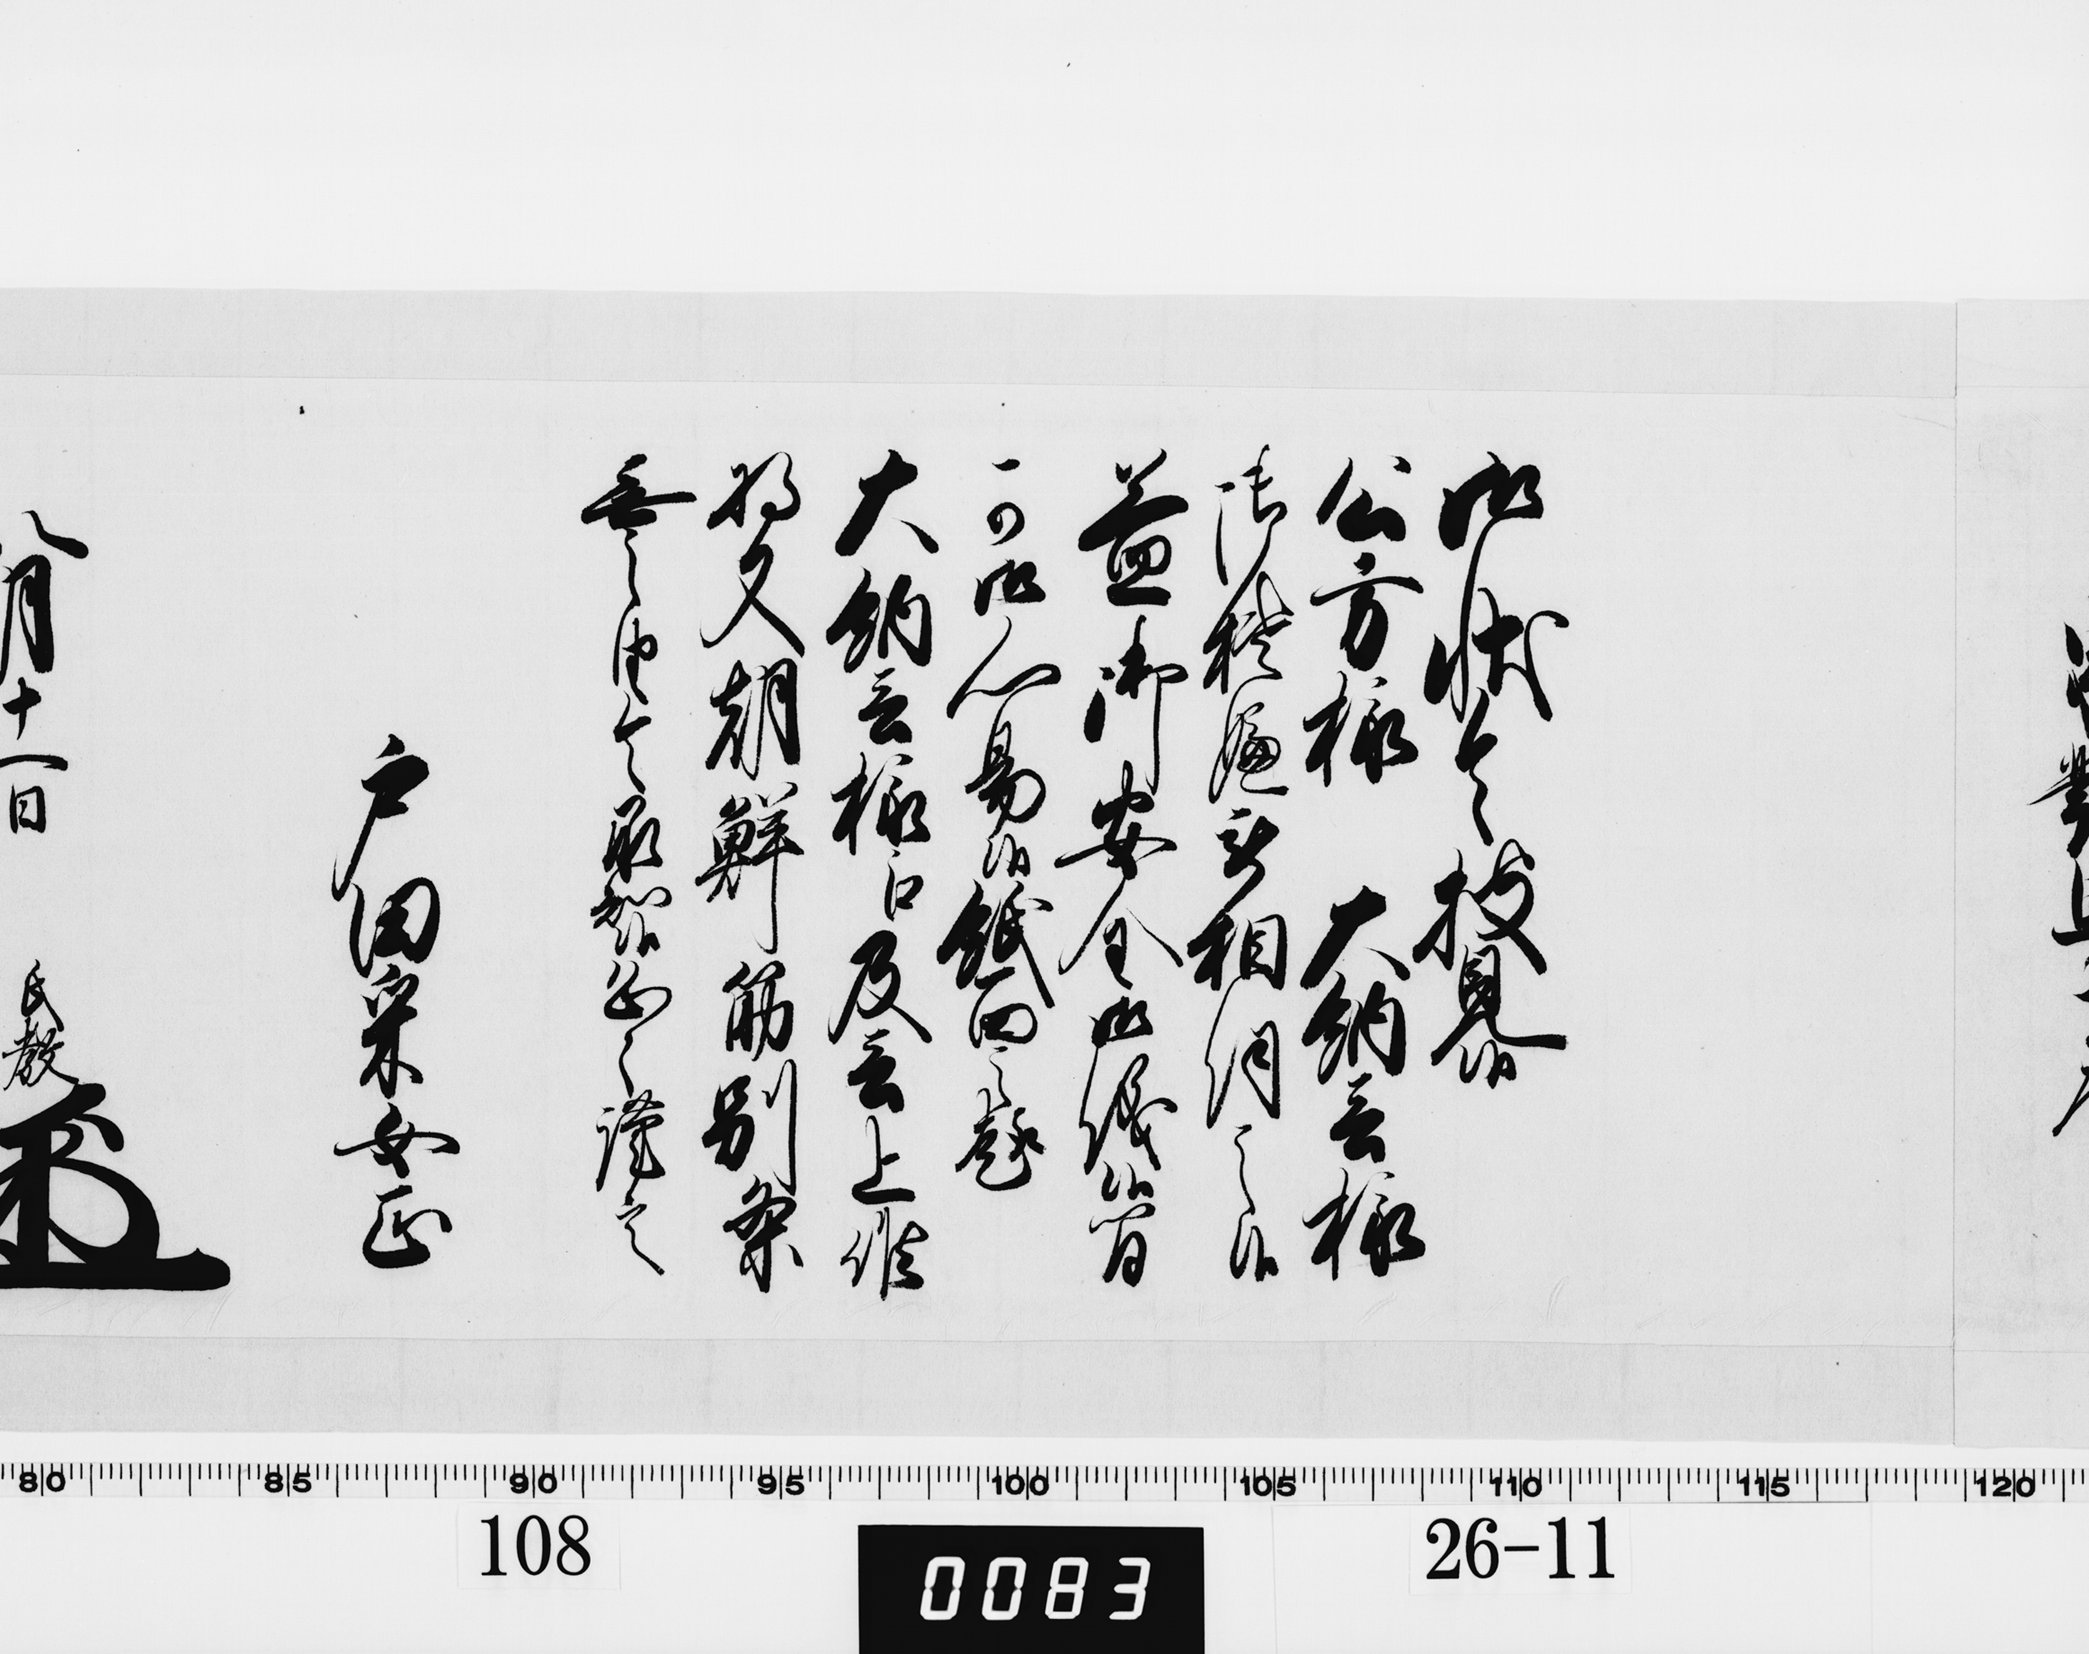 御状令披見候
公方様 大納言様
御機嫌被相伺之候
益御安全御儀候間
可御心易候紙面之趣
大納言様江及言上候
将又朝鮮筋別条
無之由令承知候恐々謹言
戸田采女正
八月十一日 氏教
80 85 90 95 100 105 110 115 120
108
0083
26-11